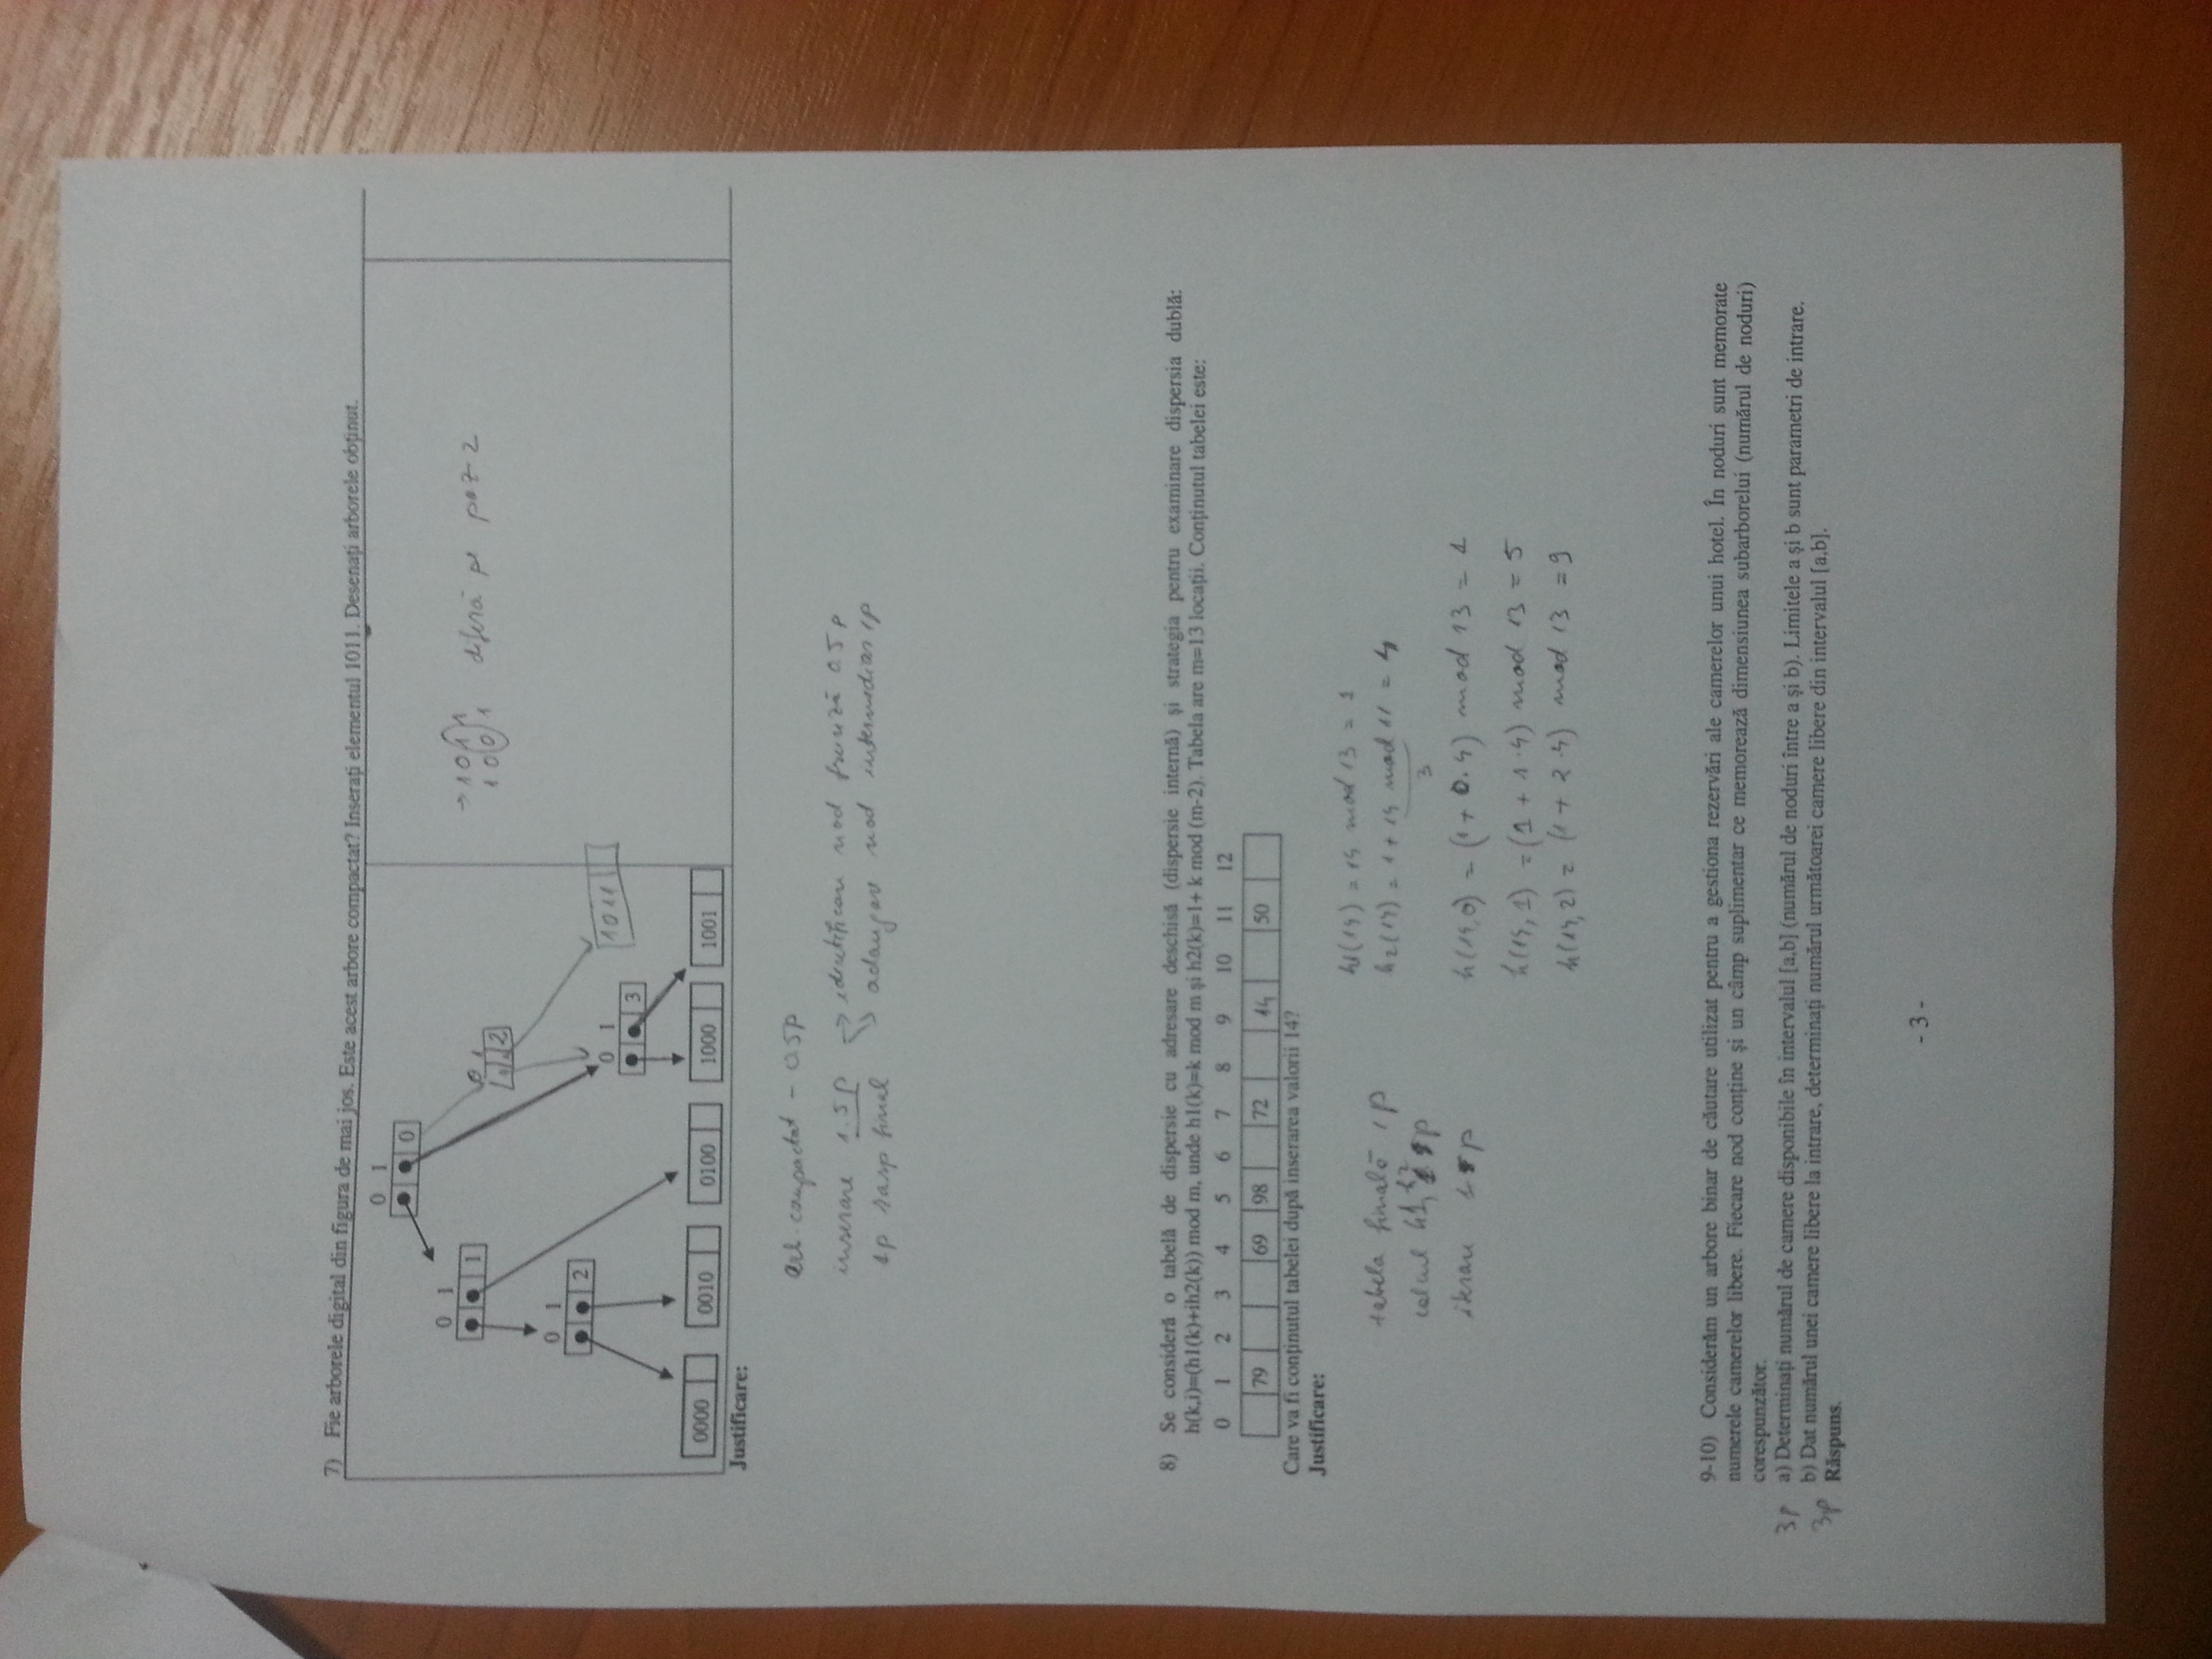 7) Fie arborele digital din figura de mai jos. Este acest arbore compactat? Inserați elementul 1011. Desenați arborele obținut.
0 1
0
0 1
1
0 1
2
→1011 diferă pe poz 2
1001
0 1
2
0 1
3
1011
0000 0010 0100 1000 1001
Justificare:
arb. compactat - 0.5p
inserare 1.5p → identificare nod frunză 0.5p
→ adaugare nod intermediar 1p
1p rasp final
8) Se consideră o tabelă de dispersie cu adresare deschisă (dispersie internă) și strategia pentru examinare dispersia dublă:
h(k,i)=(h1(k)+ih2(k)) mod m, unde h1(k)=k mod m și h2(k)=1+ k mod (m-2). Tabela are m=13 locații. Conținutul tabelei este:
0 1 2 3 4 5 6 7 8 9 10 11 12
79 69 98 72 14 50
Care va fi conținutul tabelei după inserarea valorii 14?
Justificare:
h1(14) = 14 mod 13 = 1
tabela finală 1p
h2(14) = 1 + 14 mod 11 = 4
3
calcul h1, h2 1p
iterare 1p
h(14,0) = (1 + 0.4) mod 13 = 1
h(14,1) = (1 + 1.4) mod 13 = 5
h(14,2) = (1 + 2.4) mod 13 = 9
9-10) Considerăm un arbore binar de căutare utilizat pentru a gestiona rezervări ale camerelor unui hotel. În noduri sunt memorate
numerele camerelor libere. Fiecare nod conține și un câmp suplimentar ce memorează dimensiunea subarborelui (numărul de noduri)
corespunzător.
3p a) Determinați numărul de camere disponibile în intervalul [a,b] (numărul de noduri între a și b). Limitele a și b sunt parametri de intrare.
3p b) Dat numărul unei camere libere la intrare, determinați numărul următoarei camere libere din intervalul [a,b].
Răspuns.
- 3 -